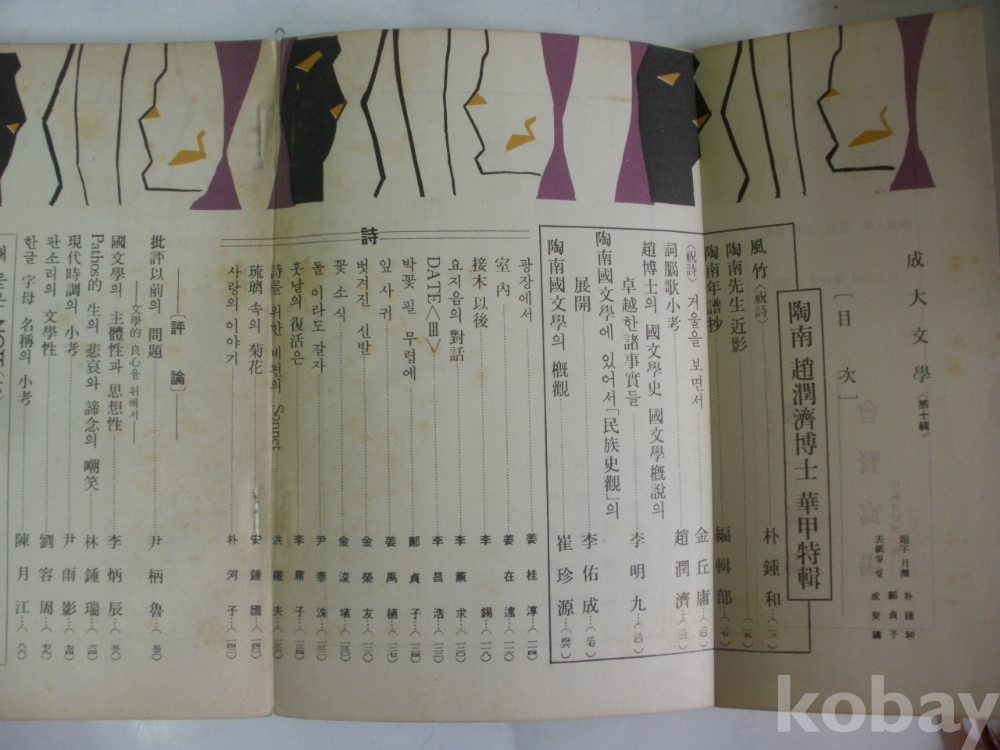 成大文學〈第十輯〉
[目次]
題字 月灘 朴鍾和
鄭貞子
成癸鏞
陶南 趙潤濟博士 華甲特輯
風竹〈祝詩〉 朴鍾和
陶南先生近影
陶南年譜抄 編輯部
〈祝詩〉 거울을 보면서 金丘庸
詞腦歌小考 趙潤濟
趙博士의 國文學史 國文學槪說의
卓越한 諸事實들 李明九
陶南國文學에 있어서「民族史觀」의
展開 李佑成
陶南國文學의 槪觀 崔珍源
詩
광장에서 姜桂淳
室內 姜在遠
接木 以後 李錫
요지음의 對話 李薰求
DATE〈Ⅲ〉 李昌浩
박꽃 필 무렵에 鄭貞子
잎사귀 姜禹植
벗겨진 신발 金榮友
꽃 소식 金浚埴
돌이라도 갈자 尹泰洙
훗날의 復活은 李庸子
詩를 위한 네편의 Sonnet
琉璃 속의 菊花 安鍾國
사랑의 이야기 朴河子
[評論]
批評以前의 問題 尹柄魯
——文學的 良心을 위해서——
國文學의 主體性과 思想性 李炳辰
Pathos的 生의 悲哀와 諦念의 嘲笑 林鍾瑞
現代時調의 小考 尹雨影
판소리의 文學性 劉容周
한글 字母 名稱의 小考 陳月江
kobay